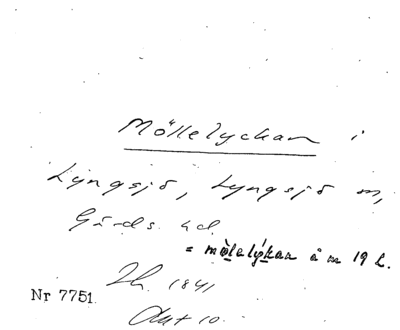 Möllelyckan i
Lyngsjö, Lyngsjö sn,
Gärds hd.
= mölelýkan å m 19 l.
1841
Nr 7751.
Akt 10